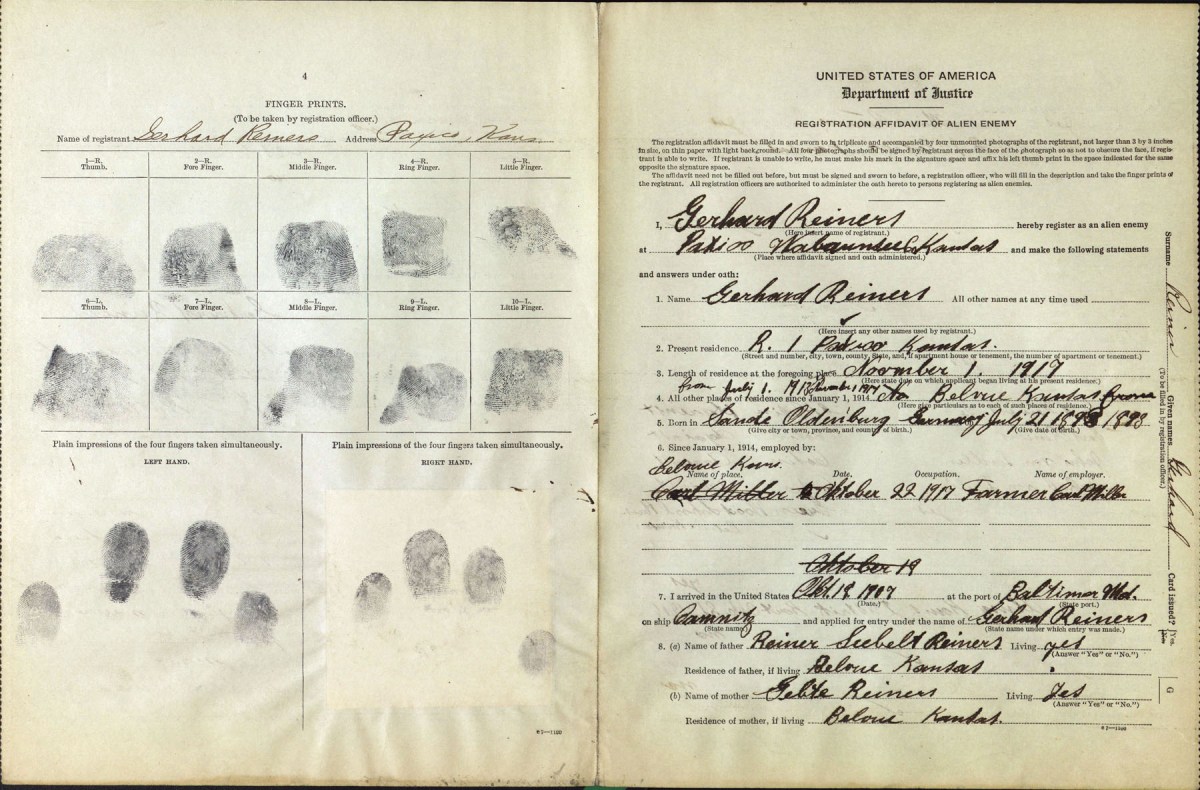 4
FINGER PRINTS.
(To be taken by registration officer.)
Name of registrant Gerhard Reiners Address Paxico, Kans.
1—R. Thumb.
2—R. Fore Finger.
3—R. Middle Finger.
4—R. Ring Finger.
5—R. Little Finger.
6—L. Thumb.
7—L. Fore Finger.
8—L. Middle Finger.
9—L. Ring Finger.
10—L. Little Finger.
Plain impressions of the four fingers taken simultaneously.
LEFT HAND.
Plain impressions of the four fingers taken simultaneously.
RIGHT HAND.
UNITED STATES OF AMERICA
Department of Justice
REGISTRATION AFFIDAVIT OF ALIEN ENEMY
The registration affidavit must be filled in and sworn to in triplicate and accompanied by four unmounted photographs of the registrant, not larger than 3 by 3 inches
in size, on thin paper with light background. All four photographs should be signed by registrant across the face of the photograph so as not to obscure the face, if regis-
trant is able to write. If registrant is unable to write, he must make his mark in the signature space and affix his left thumb print in the space indicated for the same
opposite the signature space.
The affidavit need not be filled out before, but must be signed and sworn to before, a registration officer, who will fill in the description and take the finger prints of
the registrant. All registration officers are authorized to administer the oath hereto to persons registering as alien enemies.
I, Gerhard Reiners hereby register as an alien enemy
(Here insert name of registrant.)
at Paxico Wabaunsee Co Kansas and make the following statements
(Place where affidavit signed and oath administered.)
and answers under oath:
1. Name Gerhard Reiners All other names at any time used
(Here insert any other names used by registrant.)
2. Present residence R. 1 Paxico Kansas.
(Street and number, city, town, county, State, and, if apartment house or tenement, the number of apartment or tenement.)
3. Length of residence at the foregoing place November 1. 1917
(Here state date on which applicant began living at his present residence.)
from July 1. 1917
4. All other places of residence since January 1, 1914 No Belvue Kansas from
(Here give particulars as to each of such places of residence.)
5. Born in Sande Oldenburg Germany July 21 1898
(Give city or town, province, and country of birth.) (Give date of birth.)
6. Since January 1, 1914, employed by:
Belvue Kans.
Name of place. Date. Occupation. Name of employer.
Carl Miller to Oktober 22 1917 Farmer Carl Miller
Oktober 19
7. I arrived in the United States Okt. 19 1907, at the port of Baltimor Md.
(Date.) (State port.)
on ship and applied for entry under the name of Gerhard Reiners
(State name) (State name under which entry was made.)
8. (a) Name of father Reiner Siebelt Reiners Living yes
(Answer "Yes" or "No.")
Residence of father, if living Belvue Kansas
(b) Name of mother Reiners Living Yes
(Answer "Yes" or "No.")
Residence of mother, if living Belvue Kansas.
Surname Reiner Given names Gerhard Card issued? Yes. No.
(To be filled in by registration officer.)
G